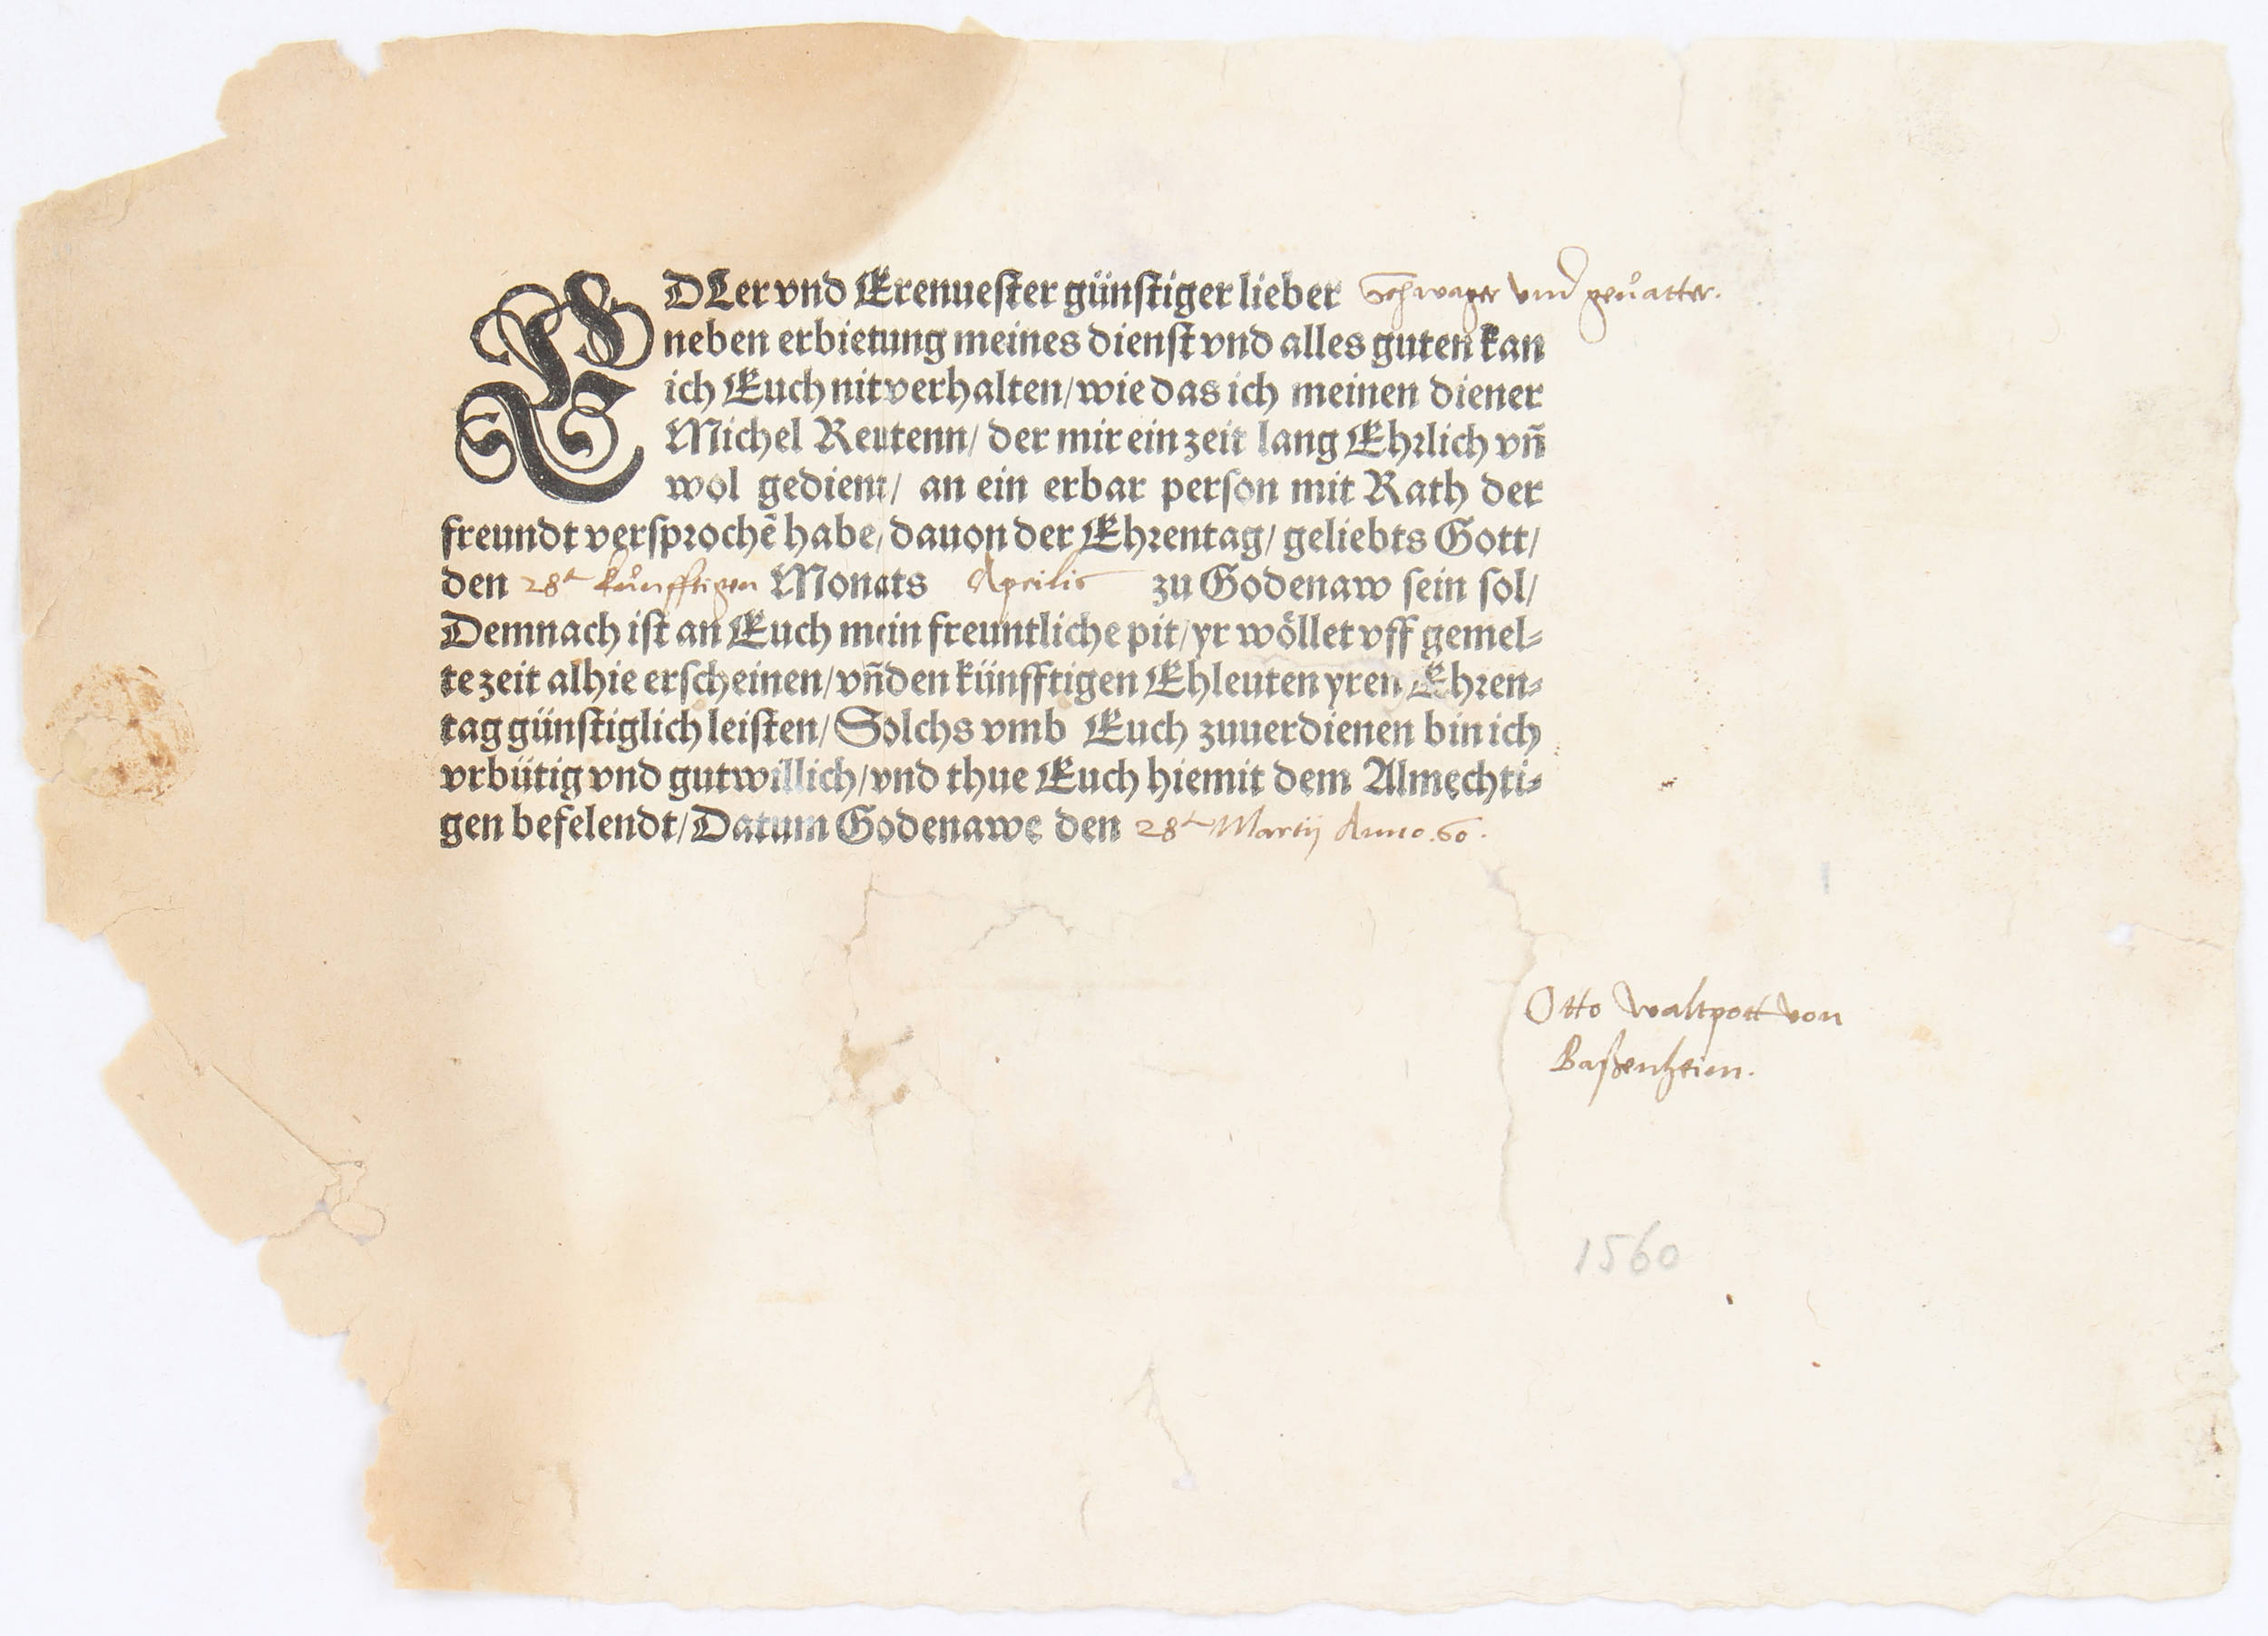 EDLer vnd Erenuester günstiger lieber Schwager vnd geuatter.
neben erbietung meines dienst vnd alles guten kan
ich Euch nit verhalten/ wie das ich meinen diener
Michel Reutenn/ der mir ein zeit lang Ehrlich vñ
wol gedient/ an ein erbar person mit Rath der
freundt versprochẽ habe/ dauon der Ehrentag/ geliebts Gott/
den 28t kůnfftigen Monats Aprilis zu Godenaw sein sol/
Demnach ist an Euch mein freuntliche pit/ yr wöllet vff gemel-
te zeit alhie erscheinen/ vñ den künfftigen Ehleuten yren Ehren-
tag günstiglich leisten/ Solchs vmb Euch zuuerdienen bin ich
vrbütig vnd gutwillich/ vnd thue Euch hiemit dem Almechti-
gen befelendt/ Datum Godenawe den 28t Martij Anno .60.
Otto Waltpott von
Baßenheim.
1560